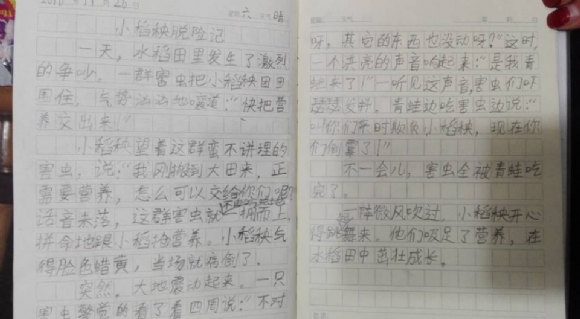 2016年11月26日 六 晴
小稻秧脱险记
一天，水稻田里发生了激烈
的争吵，一群害虫把小稻秧团团
围住，气势汹汹地嚷道："快把营
养交出来！"
小稻秧望着这群蛮不讲理的
害虫，说："我刚搬到大田来，正
需要营养，怎么可以交给你们呢？"
话音未落，这群害虫就一拥而上，
拼命地跟小稻秧营养。小稻秧气
得脸色蜡黄，当场就病倒了。
突然，大地震动起来。一只
害虫警觉的看了看四周说："不对
呀，其它的东西也没动呀？"这时，
一个洪亮的声音响起来："是我看
起来了！"一听见这声音，害虫们吓
青蛙边吃害虫边说：
"你们平时欺负小稻秧，现在你
们倒霉了！"
不一会儿，害虫全被青蛙吃
完了。
一阵微风吹过，小稻秧开心
得跳舞来。他们吸足了营养，在
水稻田中茁壮成长。